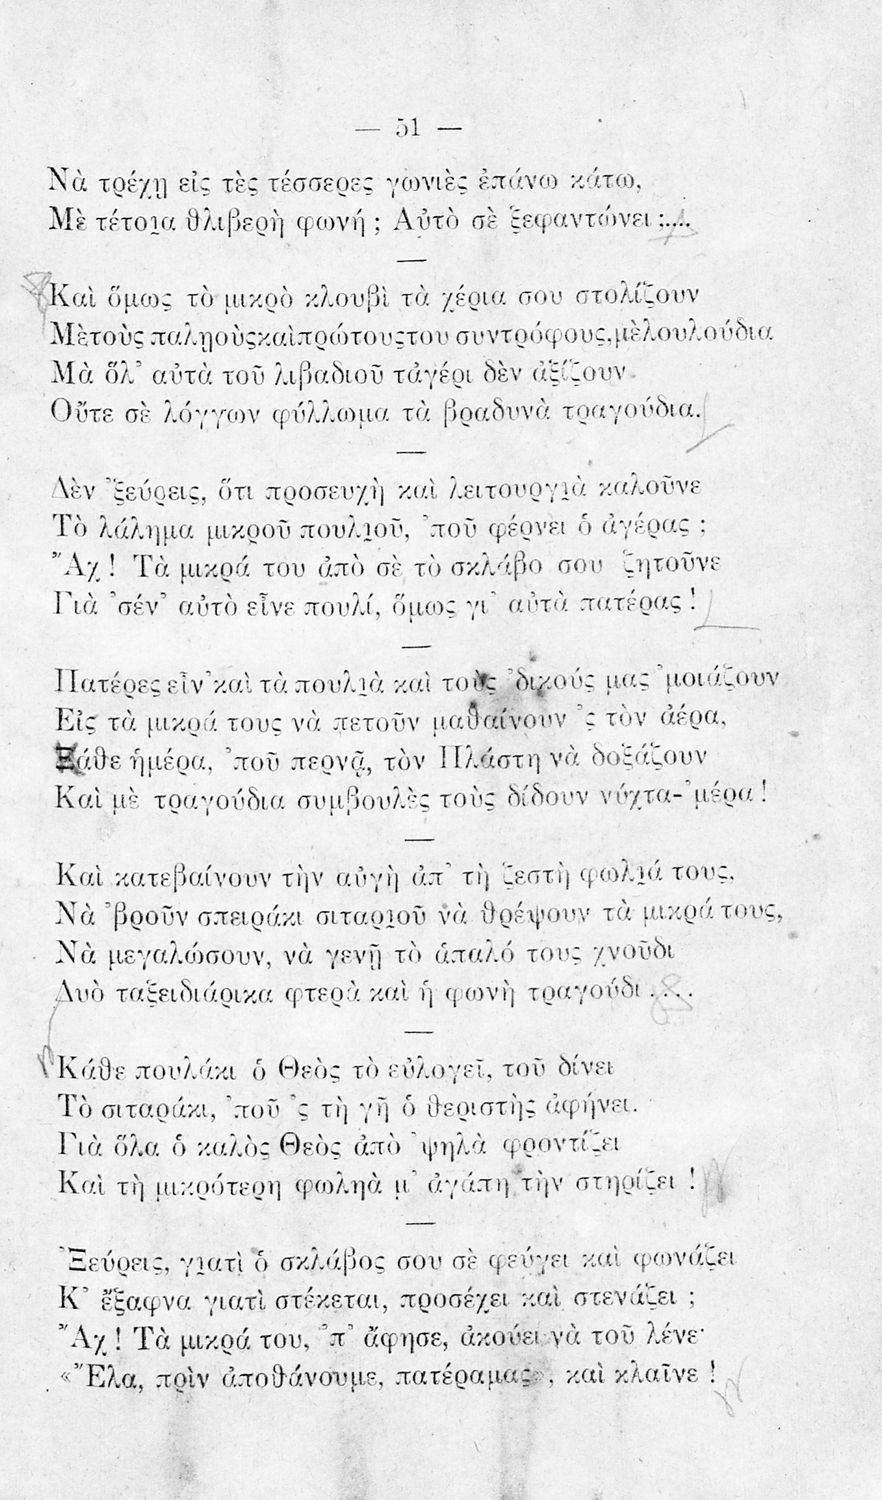 — 51 —
Νὰ τρέχῃ εἰς τὲς τέσσερες γωνιὲς ἐπάνω κάτω,
Μὲ τέτοια θλιβερὴ φωνή ; Αὐτὸ σὲ ξεφαντώνει ;....
Καὶ ὅμως τὸ μικρὸ κλουβὶ τὰ χέρια σου στολίζουν
Μὲ τοὺς παληοὺς καὶ πρώτους του συντρόφους, μὲ λουλούδια
Μὰ ὅλ' αὐτὰ τοῦ λιβαδιοῦ τἀγέρι δὲν ἀξίζουν
Οὔτε σὲ λόγγων φύλλωμα τὰ βραδυνὰ τραγούδια.
Δὲν 'ξεύρεις, ὅτι προσευχὴ καὶ λειτουργιὰ καλοῦνε
Τὸ λάλημα μικροῦ πουλιοῦ, 'ποῦ φέρνει ὁ ἀγέρας ;
Ἄχ ! Τὰ μικρά του ἀπὸ σὲ τὸ σκλάβο σου ζητοῦνε
Γιὰ 'σέν' αὐτὸ εἶνε πουλί, ὅμως γι' αὐτὰ πατέρας !
Πατέρες εἶν' καὶ τὰ πουλιὰ καὶ τοὺς 'δικούς μας 'μοιάζουν
Εἰς τὰ μικρά τους νὰ πετοῦν μαθαίνουν 'ς τὸν ἀέρα,
Κάθε ἡμέρα, 'ποῦ περνᾷ, τὸν Πλάστη νὰ δοξάζουν
Καὶ μὲ τραγούδια συμβουλὲς τοὺς δίδουν νύχτα-'μέρα !
Καὶ κατεβαίνουν τὴν αὐγὴ ἀπ' τὴ ζεστὴ φωλιά τους,
Νὰ 'βροῦν σπειράκι σιταριοῦ νὰ θρέψουν τὰ μικρά τους,
Νὰ μεγαλώσουν, νὰ γενῇ τὸ ἁπαλό τους χνοῦδι
Δυὸ ταξειδιάρικα φτερὰ καὶ ἡ φωνὴ τραγούδι ....
Κάθε πουλάκι ὁ Θεὸς τὸ εὐλογεῖ, τοῦ δίνει
Τὸ σιταράκι, 'ποῦ 'ς τὴ γῆ ὁ θεριστὴς ἀφήνει.
Γιὰ ὅλα ὁ καλὸς Θεὸς ἀπὸ 'ψηλὰ φροντίζει
Καὶ τὴ μικρότερη φωληὰ μ' ἀγάπη τὴν στηρίζει !
'Ξεύρεις, γιατὶ ὁ σκλάβος σου σὲ φεύγει καὶ φωνάζει
Κ' ἔξαφνα γιατὶ στέκεται, προσέχει καὶ στενάζει ;
Ἄχ ! Τὰ μικρά του, 'π' ἄφησε, ἀκούει νὰ τοῦ λένε·
«Ἔλα, πρὶν ἀποθάνουμε, πατέρα μας», καὶ κλαῖνε !